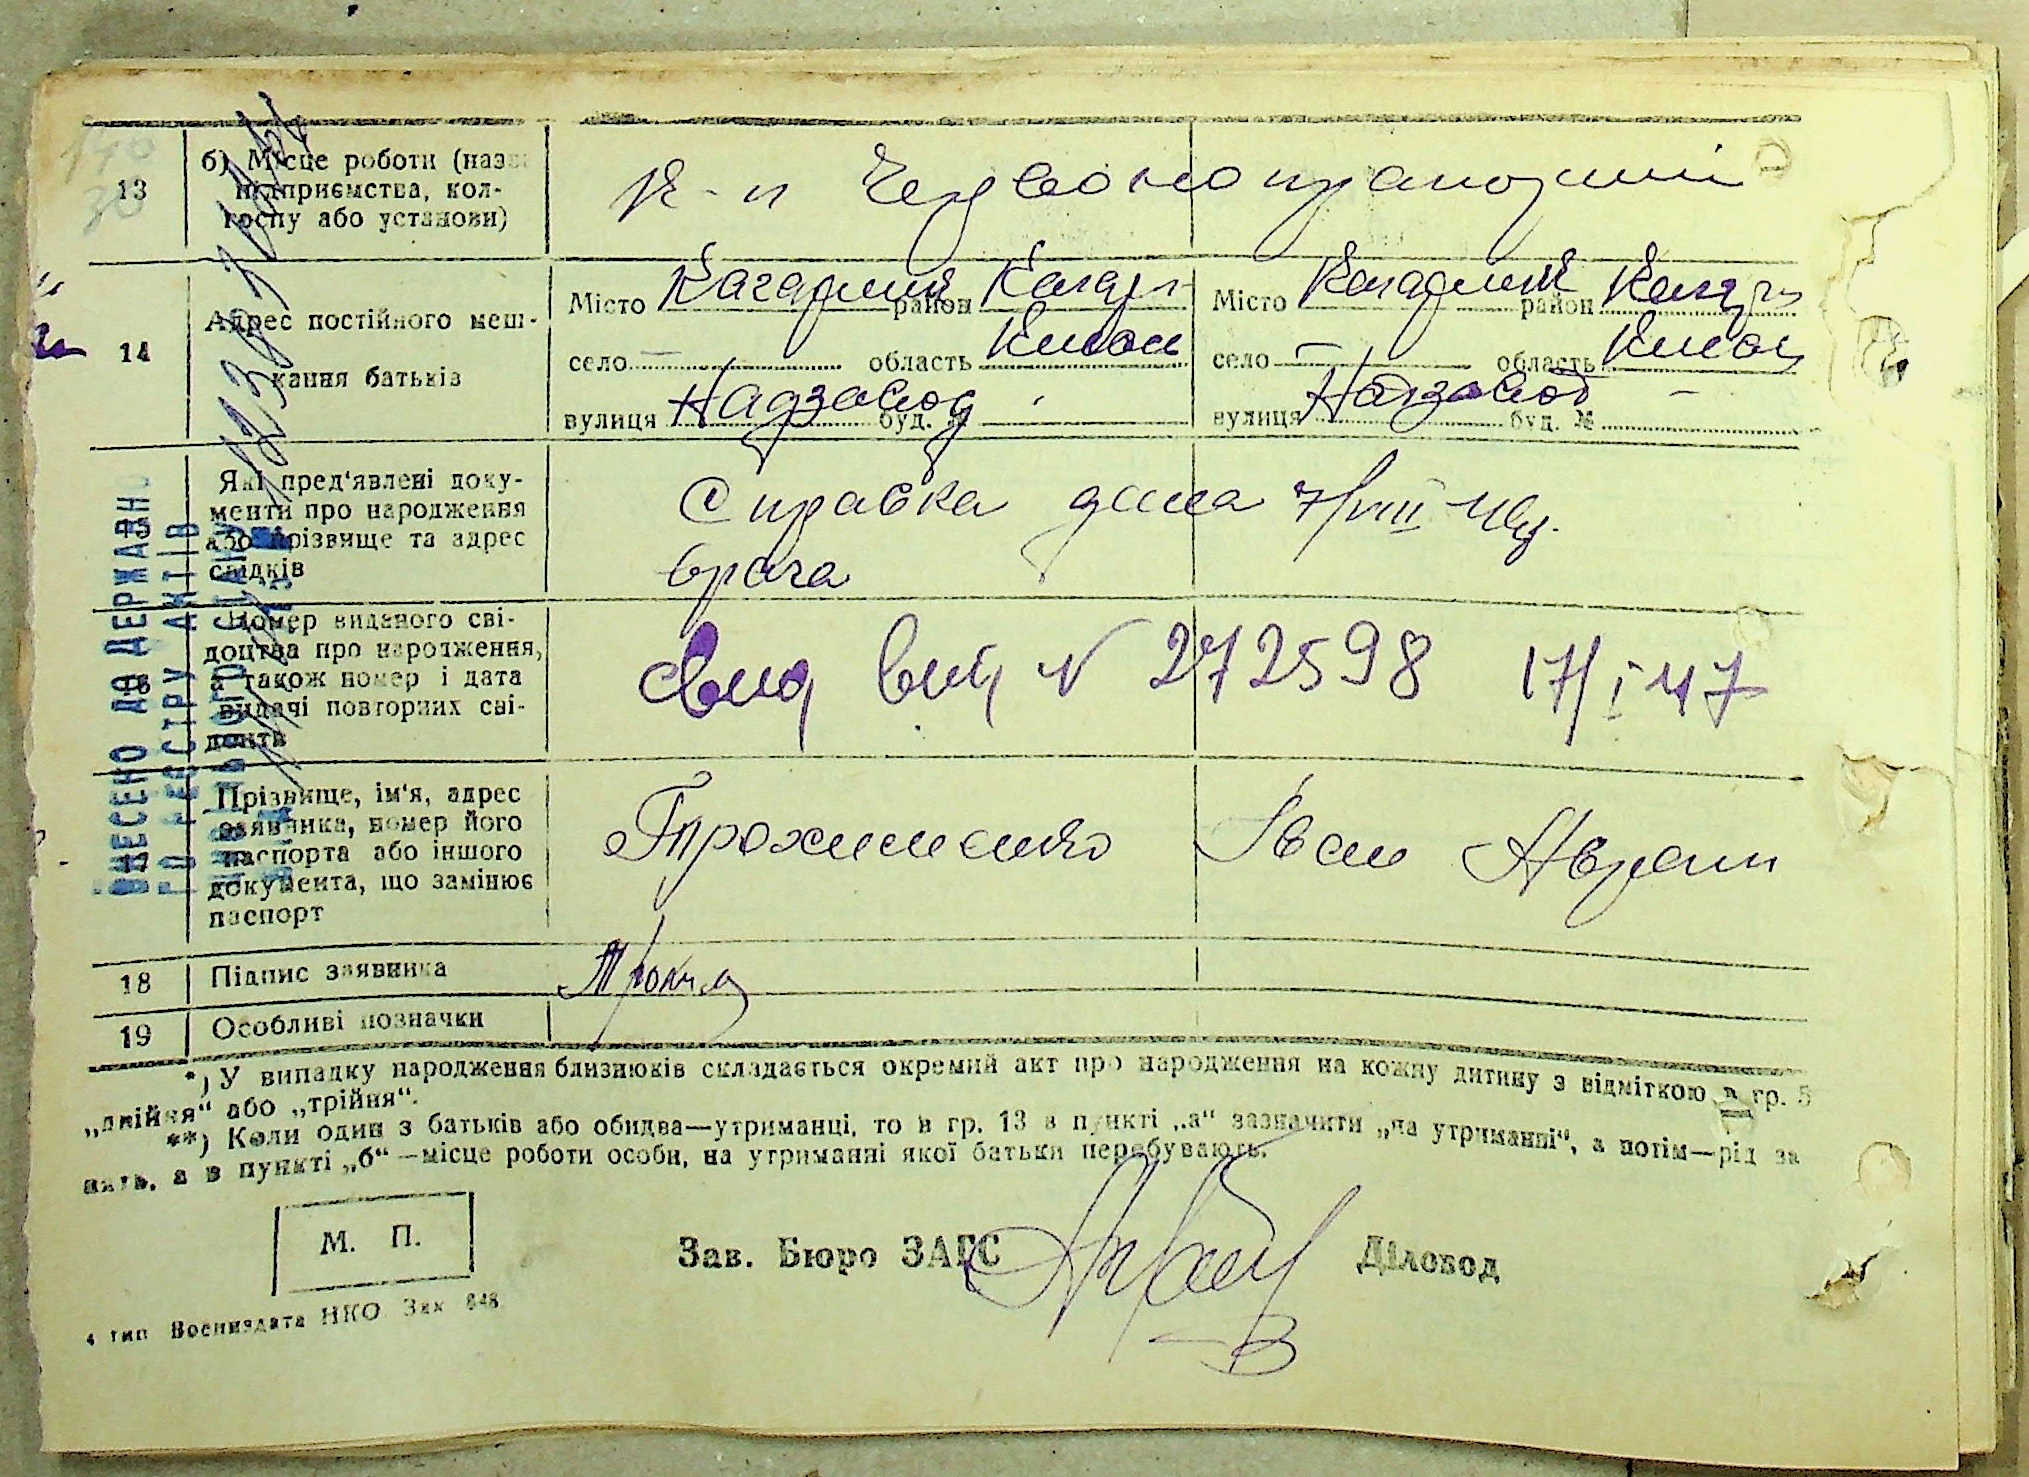 13
б) Місце роботи (назва
підприємства, кол-
госпу або установи)
к-п Червонопрапорний
14
Адрес постійного меш-
кання батьків
Місто Кагарлик район Кагарл
село — область Київськ
вулиця Надзавод буд. №
Місто Кагарлик район Кагарл
село — область Київськ
вулиця Надзавод буд. № —
15
Які пред'явлені доку-
менти про народження
або прізвище та адрес
свідків
Справка дана 7/VIII
врача
16
Номер виданого сві-
доцтва про народження,
а також номер і дата
видачі повторних сві-
доцтв
свид вид № 272598 17/I 47
17
Прізвище, ім'я, адрес
заявника, номер його
паспорта або іншого
документа, що замінює
паспорт
Трохименко Іван Аврам
18
Підпис заявника
19
Особливі позначки
*) У випадку народження близнюків складається окремий акт про народження на кожну дитину з відміткою в гр. 5
„двійня“ або „трійня“.
**) Коли один з батьків або обидва—утриманці, то в гр. 13 в пункті „а“ зазначити „на утриманні“, а потім—рід за
нять, а в пункті „б“—місце роботи особи, на утриманні якої батьки перебувають.
М. П.
Зав. Бюро ЗАГС
Діловод
4 тип Воениздата НКО Зак 648
ВНЕСЕНО ДО ДЕРЖАВНО
ГО РЕЄСТРУ АКТІВ
ЦИВІЛЬНОГО СТАНУ